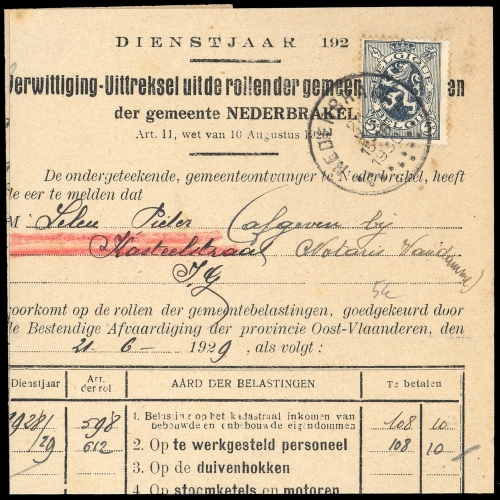 DIENSTJAAR 192
Verwittiging-Uittreksel uit de rollen der gemeen en
der gemeente NEDERBRAKEL
Art. 11, wet van 10 Augustus 192
BELGIQUE
BELGIË
5c
NEDERBR
De ondergeteekende, gemeenteontvanger te Nederbrakel, heeft
de eer te melden dat
M Leleu Pieter (afgeven bij
Kasteelstraat Notaris Vandamme)
T.G
54
voorkomt op de rollen der gemeentebelastingen, goedgekeurd door
de Bestendige Afvaardiging der provincie Oost-Vlaanderen, den
21-6- 1929, als volgt :
Dienstjaar Art. der rol AARD DER BELASTINGEN Te betalen
1928/ 598 1. Belasting op het kadastraal inkomen van
bebouwde en onbebouwde eigendommen 108 10
29 612 2. Op te werkgesteld personeel 108 10
3. Op de duivenhokken
4. Op stoomketels en motoren